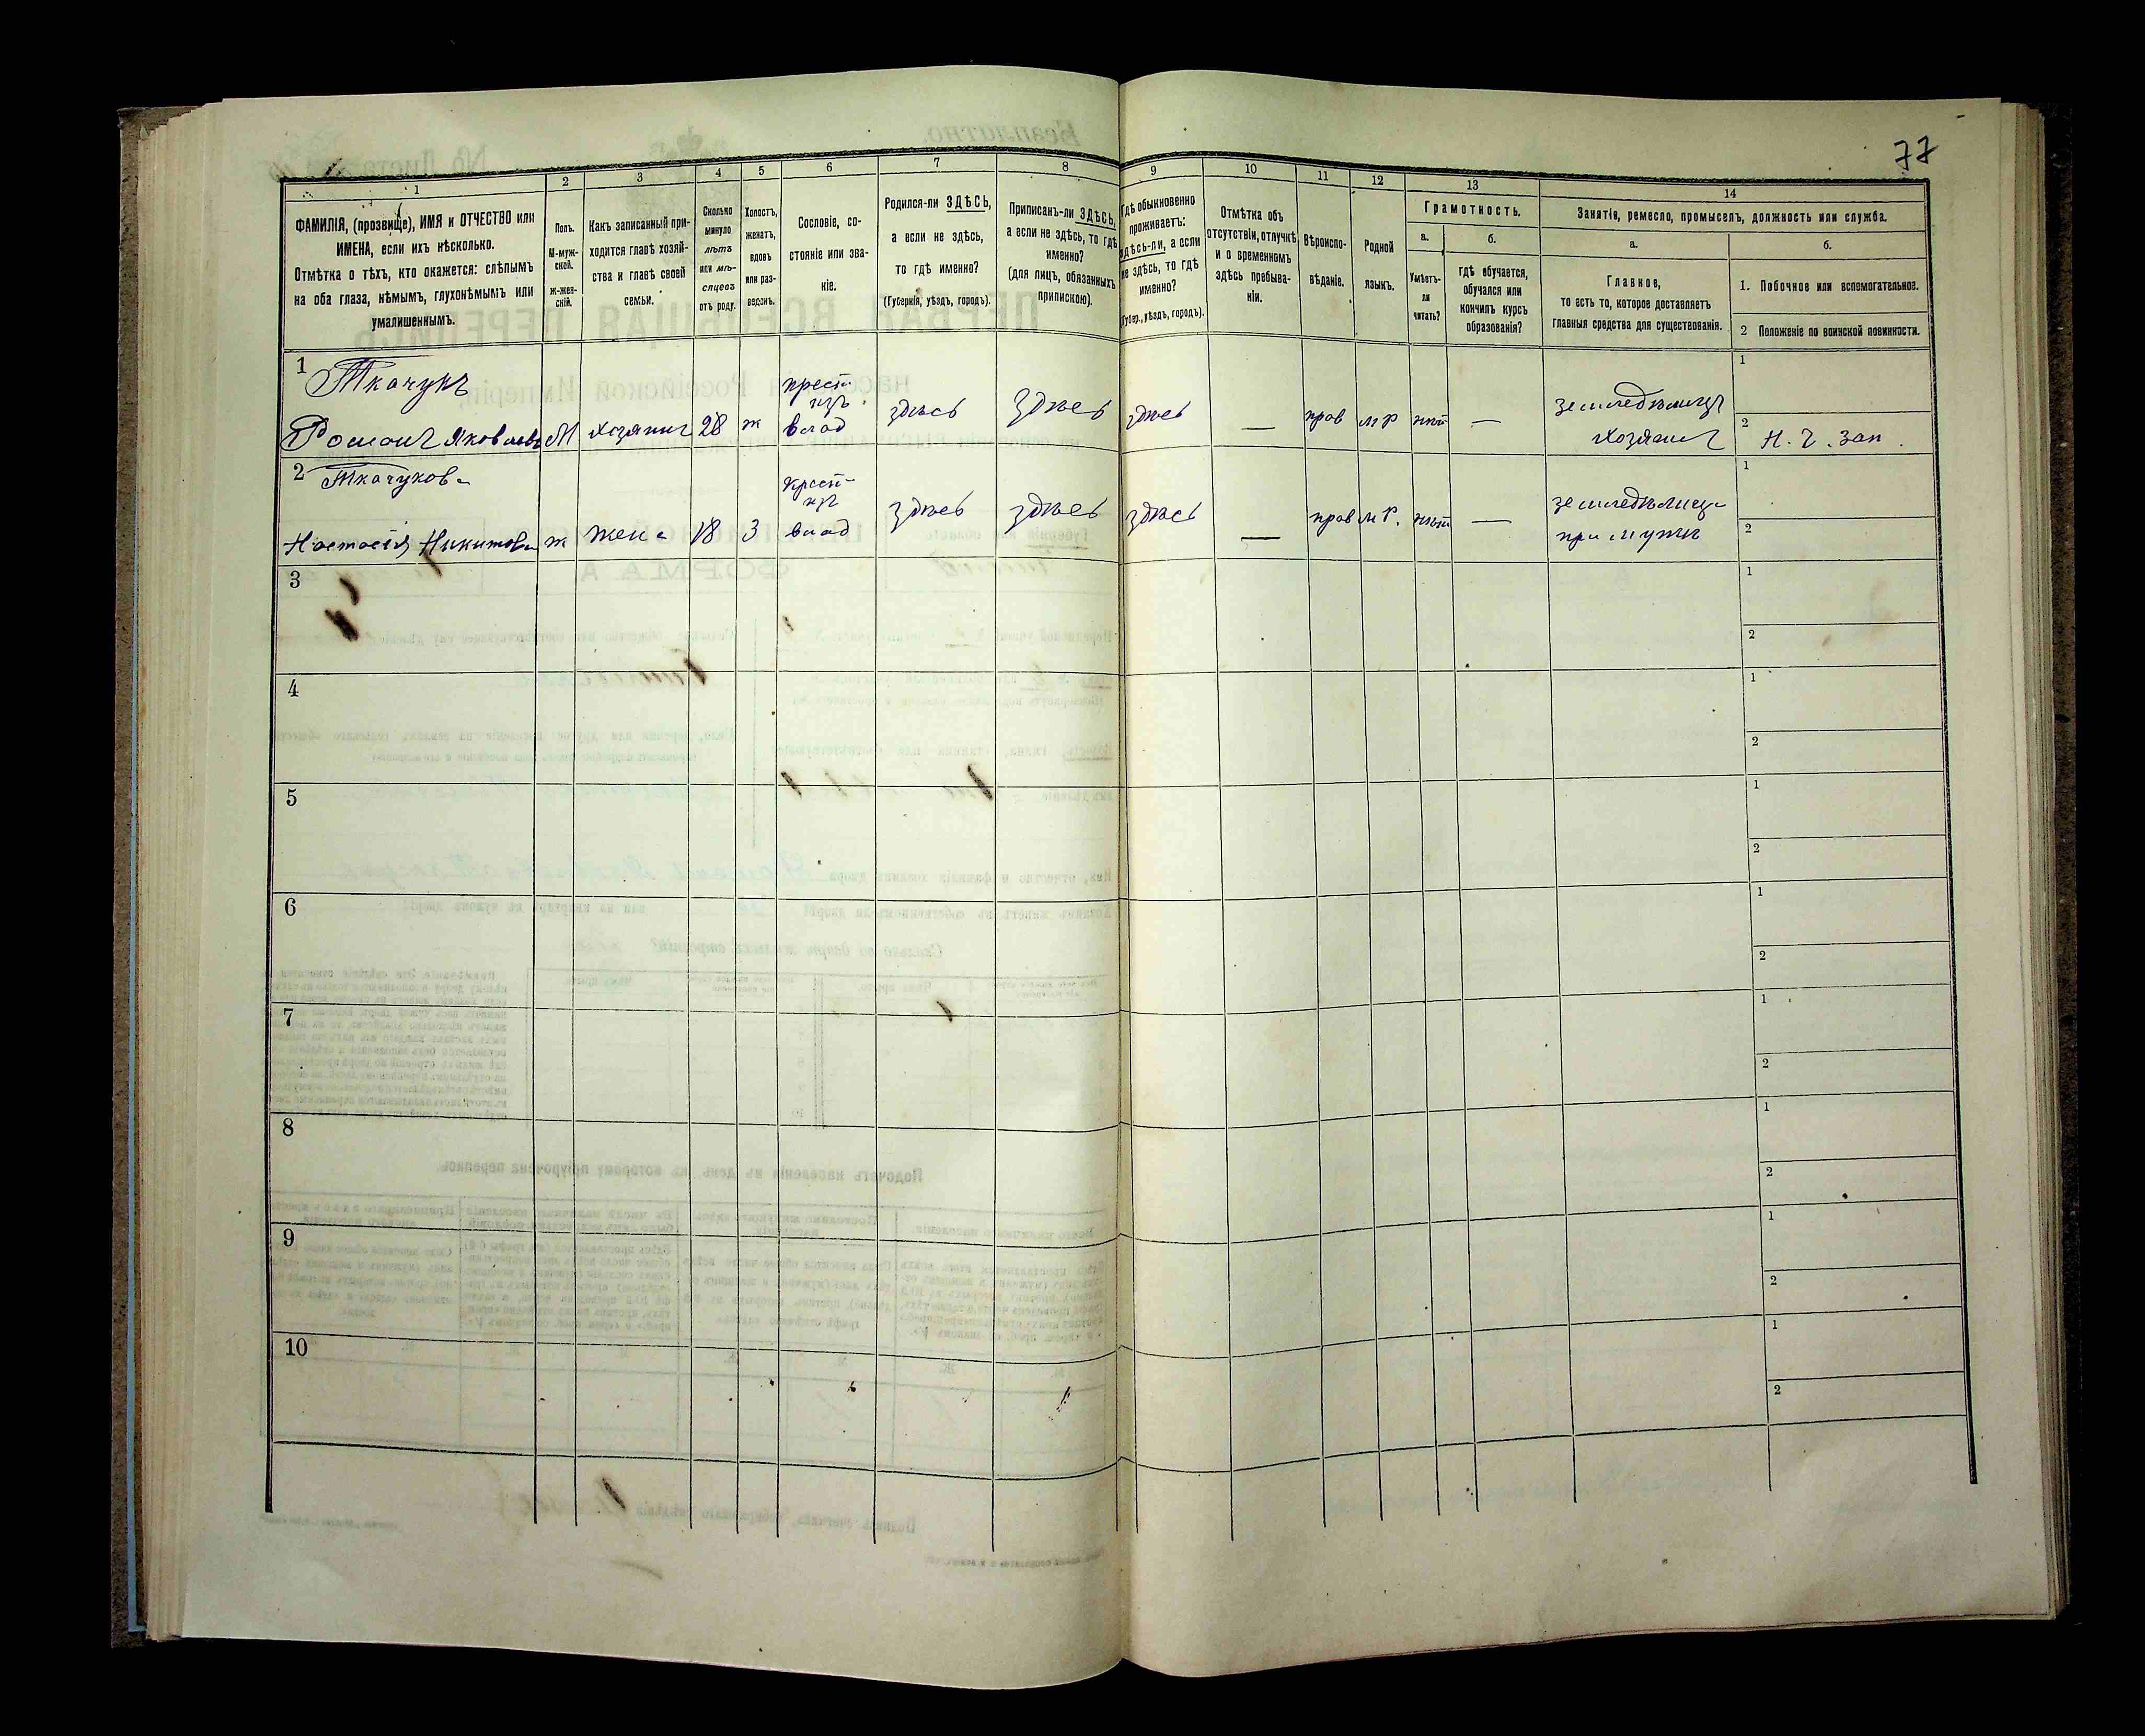 77
1 2 3 4 5 6 7 8 9 10 11 12 13 14
ФАМИЛІЯ, (прозвище), ИМЯ и ОТЧЕСТВО или
ИМЕНА, если ихъ нѣсколько.
Отмѣтка о тѣхъ, кто окажется: слѣпымъ
на оба глаза, нѣмымъ, глухонѣмымъ или
умалишеннымъ.
Полъ.
М-муж-
ской.
Ж-жен-
скій.
Какъ записанный при-
ходится главѣ хозяй-
ства и главѣ своей
семьи.
Сколько
минуло
лѣтъ
или мѣ-
сяцевъ
отъ роду.
Холостъ,
женатъ,
вдовъ
или раз-
веденъ.
Сословіе, со-
стояніе или зва-
ніе.
Родился-ли ЗДѢСЬ,
а если не здѣсь,
то гдѣ именно?
(Губернія, уѣздъ, городъ).
Приписанъ-ли ЗДѢСЬ,
а если не здѣсь, то гдѣ
именно?
(для лицъ, обязанныхъ
припискою).
Гдѣ обыкновенно
проживаетъ:
здѣсь-ли, а если
не здѣсь, то гдѣ
именно?
(Губер., уѣздъ, городъ).
Отмѣтка объ
отсутствіи, отлучкѣ
и о временномъ
здѣсь пребыва-
ніи.
Вѣроиспо-
вѣданіе.
Родной
языкъ.
Грамотность.
а.
Умѣетъ-
ли
читать?
б.
гдѣ обучается,
обучался или
кончилъ курсъ
образованія?
Занятіе, ремесло, промыселъ, должность или служба.
а.
Главное,
то есть то, которое доставляетъ
главныя средства для существованія.
б.
1. Побочное или вспомогательное.
2 Положеніе по воинской повинности.
1 Ткачукъ
Романъ Яковлевъ М хозяинъ 28 ж крест. изъ влад здѣсь здѣсь здѣсь — прав мр нѣт — земледѣлецъ хозяинъ
1
2 Н. Ч. Зап.
2 Ткачукова
Настасія Никитова ж жена 18 З крест. изъ влад здѣсь здѣсь здѣсь — прав М Р. нѣт — земледѣлица при мужѣ
1
2
3
1
2
4
1
2
5
1
2
6
1
2
7
1
2
8
1
2
9
1
2
10
1
2